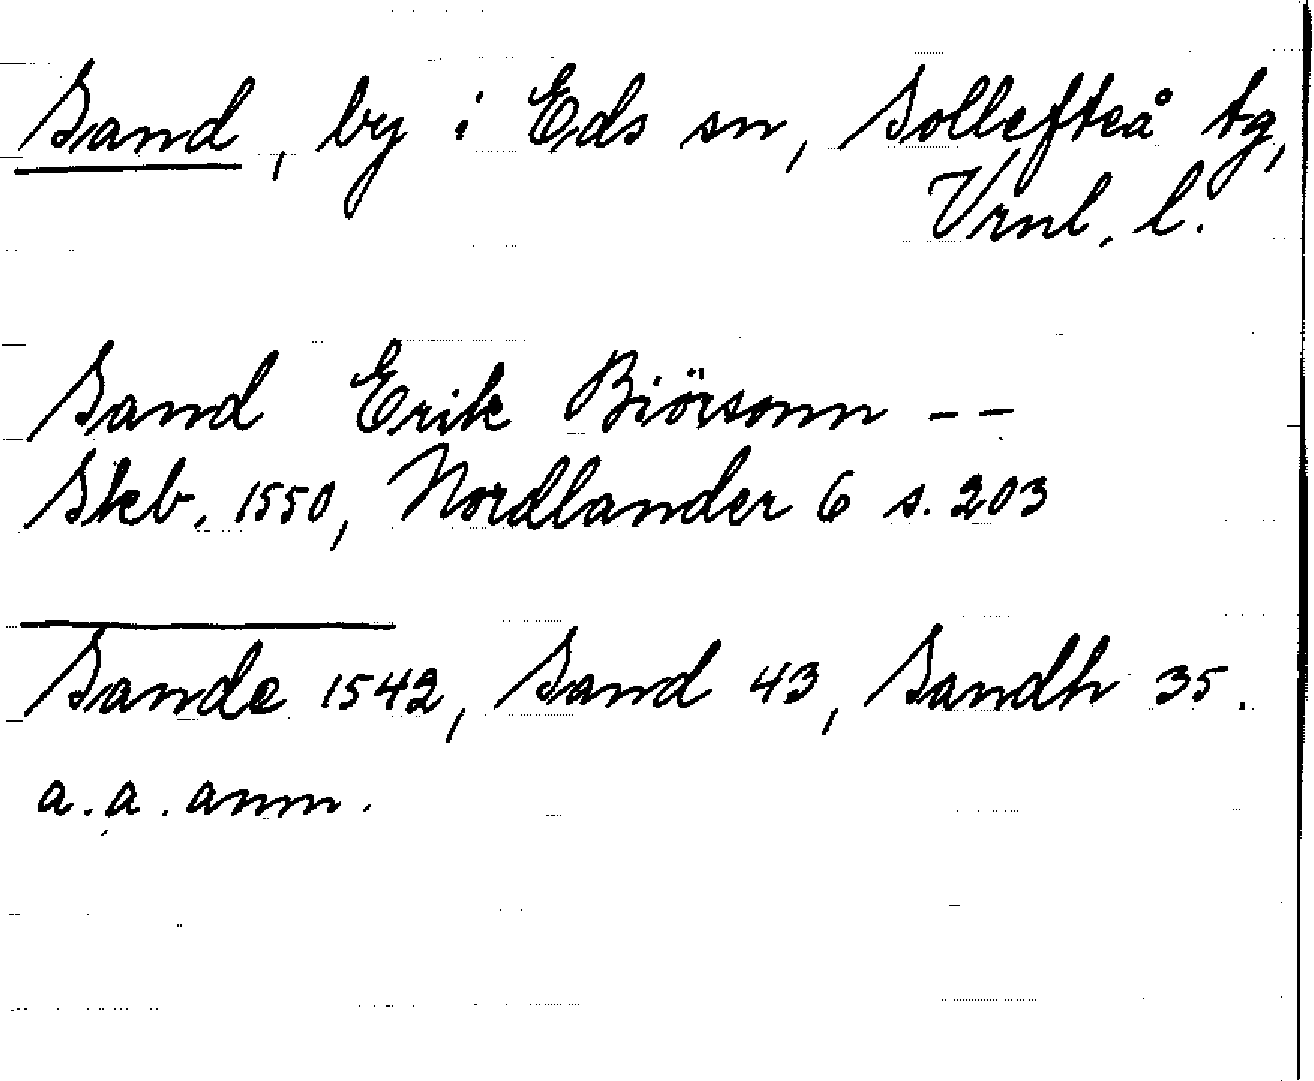 Sand, by i Eds sn, Sollefteå tg,
Vrnl. l.
Sand Erik Biörsonn --
Skb. 1550, Nordlander 6 s. 203
Sande 1542, Sand 43, Sandh 35.
a.a. anm.